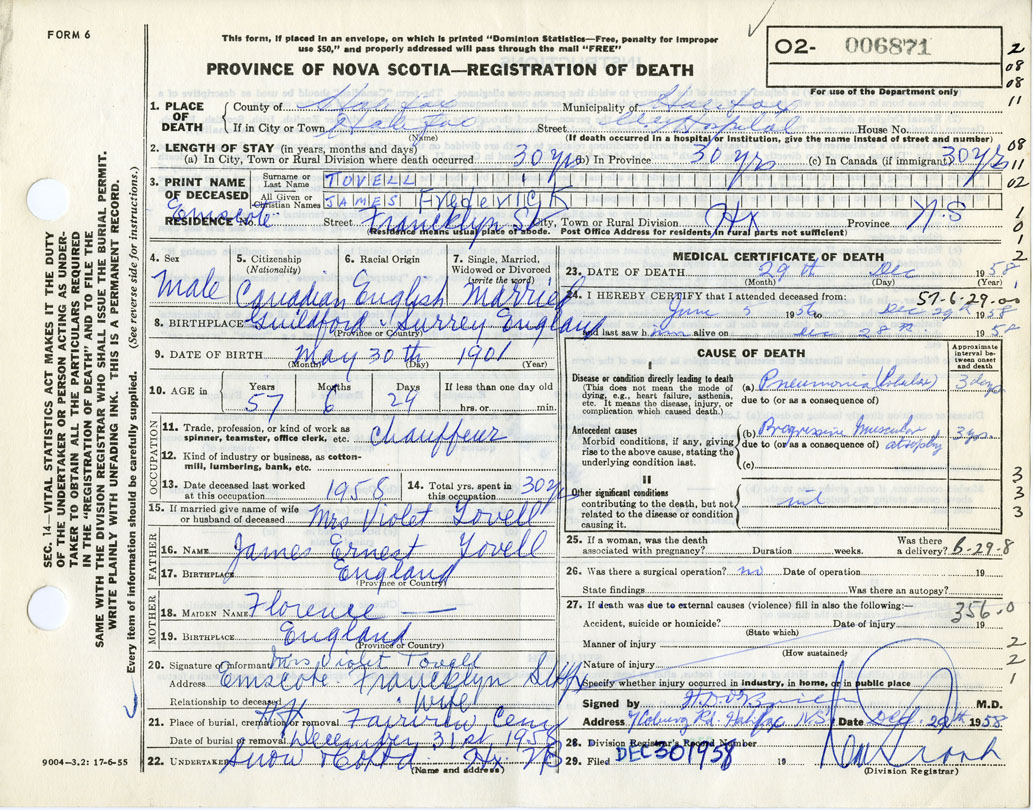 FORM 6
This form, if placed in an envelope, on which is printed "Dominion Statistics—Free, penalty for improper
use $50," and properly addressed will pass through the mail "FREE"
PROVINCE OF NOVA SCOTIA—REGISTRATION OF DEATH
O2- 006871
For use of the Department only
2
08
08
11
08
11
02
1
0
1
2
1. PLACE OF DEATH
County of Halifax Municipality of Halifax
If in City or Town Halifax Street Hospital House No.
(Name) (If death occurred in a hospital or institution, give name instead of street and number)
2. LENGTH OF STAY (in years, months and days)
(a) In City, Town or Rural Division where death occurred 30 yrs (b) In Province 30 yrs (c) In Canada (if immigrant) 30 yrs
3. PRINT NAME OF DECEASED
Surname or Last Name TOVELL
All Given or Christian Names JAMES FredericK
RESIDENCE No. Emscote Street Francklyn St City, Town or Rural Division Hx Province N.S.
(Residence means usual place of abode. Post Office Address for residents in rural parts not sufficient)
4. Sex
Male
5. Citizenship (Nationality)
Canadian
6. Racial Origin
English
7. Single, Married, Widowed or Divorced (write the word)
Married
8. BIRTHPLACE Guildford Surrey England
(Province or Country)
9. DATE OF BIRTH May 30th 1901
(Month) (Day) (Year)
10. AGE in Years Months Days If less than one day old
57 6 29 hrs. or min.
OCCUPATION
11. Trade, profession, or kind of work as spinner, teamster, office clerk, etc. Chauffeur
12. Kind of industry or business, as cotton-mill, lumbering, bank, etc.
13. Date deceased last worked at this occupation 1958
14. Total yrs. spent in this occupation 30 yrs
15. If married give name of wife or husband of deceased Mrs Violet Tovell
FATHER
16. NAME James Ernest Tovell
17. BIRTHPLACE England
(Province or Country)
MOTHER
18. MAIDEN NAME Florence —
19. BIRTHPLACE England
(Province or Country)
20. Signature of informant Mrs Violet Tovell
Address Emscote Francklyn St Hx
Relationship to deceased Wife
21. Place of burial, cremation or removal Fairview Cem Hx
Date of burial or removal December 31st 1958
22. UNDERTAKER Snow Hx NS
(Name and address)
MEDICAL CERTIFICATE OF DEATH
23. DATE OF DEATH 29th Dec 1958
(Month) (Day) (Year)
57-6-29-00
24. I HEREBY CERTIFY that I attended deceased from:
June 5 1956 to Dec 29th 1958
last saw him alive on Dec 28th 1958
CAUSE OF DEATH
Approximate interval between onset and death
I
Disease or condition directly leading to death
(This does not mean the mode of dying, e.g., heart failure, asthenia, etc. It means the disease, injury, or complication which caused death.)
(a) Pneumonia (Lobular) 3 days
due to (or as a consequence of)
Antecedent causes
Morbid conditions, if any, giving rise to the above cause, stating the underlying condition last.
(b) Progressive Muscular atrophy 3 yrs.
due to (or as a consequence of)
(c)
II
Other significant conditions
contributing to the death, but not related to the disease or condition causing it.
nil
3
3
3
25. If a woman, was the death associated with pregnancy? Duration weeks. Was there a delivery?
B-29-8
26. Was there a surgical operation? no Date of operation 19
State findings Was there an autopsy?
27. If death was due to external causes (violence) fill in also the following:—
356.0
Accident, suicide or homicide? Date of injury 19
(State which)
Manner of injury
(How sustained)
Nature of injury
Specify whether injury occurred in industry, in home, or in public place
2
2
1
Signed by M.D.
Address Coburg Rd. Halifax, NS Date Dec. 29th 1958
28. Division Registrar's Record Number
29. Filed DEC 30 1958 19
(Division Registrar)
9004—3.2: 17-6-55
SEC. 14—VITAL STATISTICS ACT MAKES IT THE DUTY
OF THE UNDERTAKER OR PERSON ACTING AS UNDER-
TAKER TO OBTAIN ALL THE PARTICULARS REQUIRED
IN THE "REGISTRATION OF DEATH" AND TO FILE THE
SAME WITH THE DIVISION REGISTRAR WHO SHALL ISSUE THE BURIAL PERMIT.
WRITE PLAINLY WITH UNFADING INK. THIS IS A PERMANENT RECORD.
Every item of information should be carefully supplied. (See reverse side for instructions.)